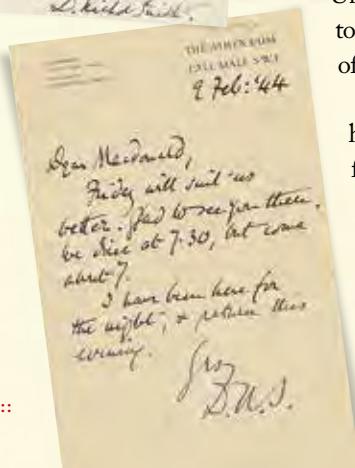 THE ATHENÆUM
PALL MALL S.W.1
9 Feb: '44
Dear Macdonald,
Friday will suit us
better. Glad to see you then.
We dine at 7.30, but come
about 7.
I have been here for
the night, & return this
evening.
Yrs
D.N.S.
to
of
h
f
::